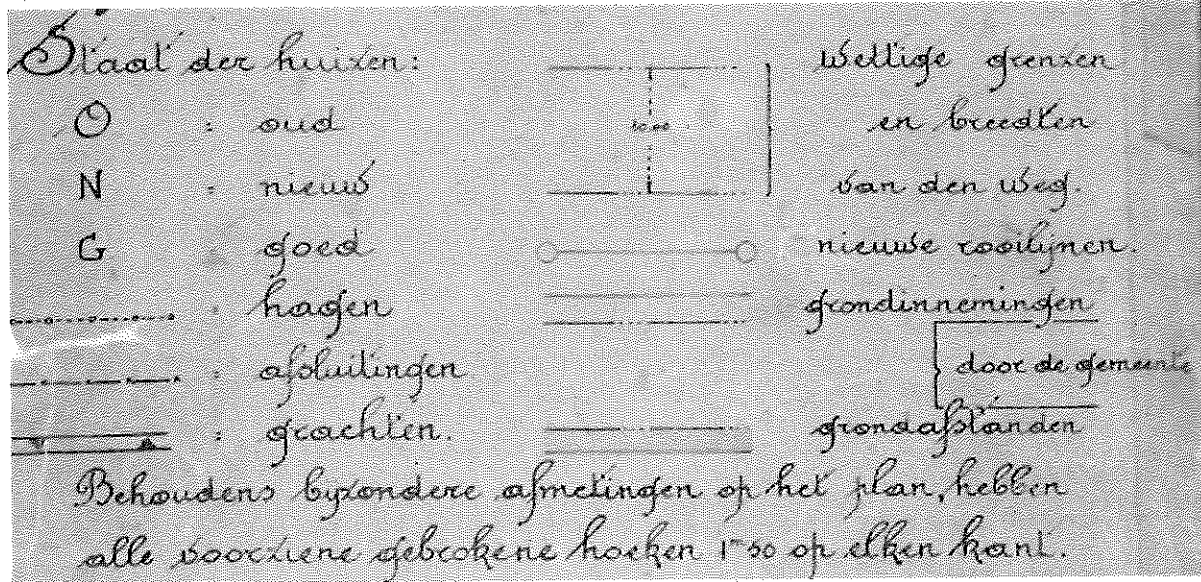 Staat der huizen:
O : oud
N : nieuw
G : goed
: hagen
: afsluitingen
: grachten.
10.00
Wettige grenzen
en breedten
van den weg.
nieuwe rooilijnen.
grondinnemingen
door de gemeente
grondafstanden
Behoudens byzondere afmetingen op het plan, hebben
alle voorziene gebrokene hoeken 1m50 op elken kant.